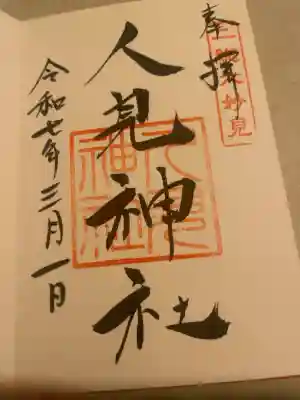 奉拝
妙見
人見神社
令和七年三月一日